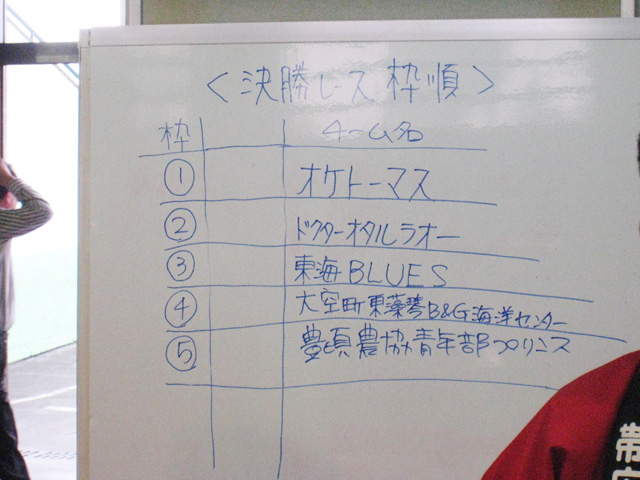 ＜決勝レース 枠順＞
枠 チーム名
① オケトーマス
② ドクターオタルラオー
③ 東海BLUES
④ 大空町東藻琴B&G海洋センター
⑤ 豊頃農協青年部プリンス
帯